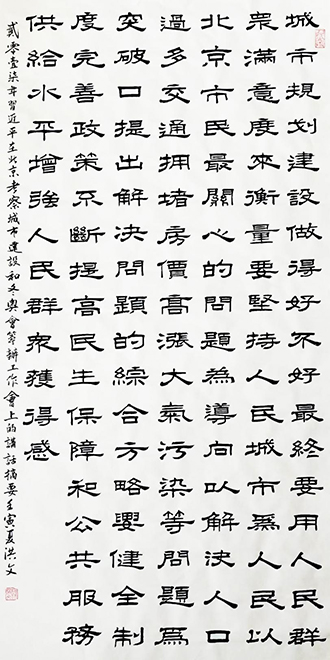 城市規划建設做得好不好最終要用人民群
衆滿意度來衡量要堅持人民城市爲人民以
北京市民最關心的問題為導向以解決人口
過多交通拥堵房價高漲大氣污染等問題爲
突破口提出解決問題的綜合方略要健全制
度完善政策不斷提高民生保障和公共服務
供給水平增強人民群衆獲得感
貳零壹柒年習近平在北京考察城市建設和冬奧會筹辦工作會上的講話摘要壬寅夏洪文